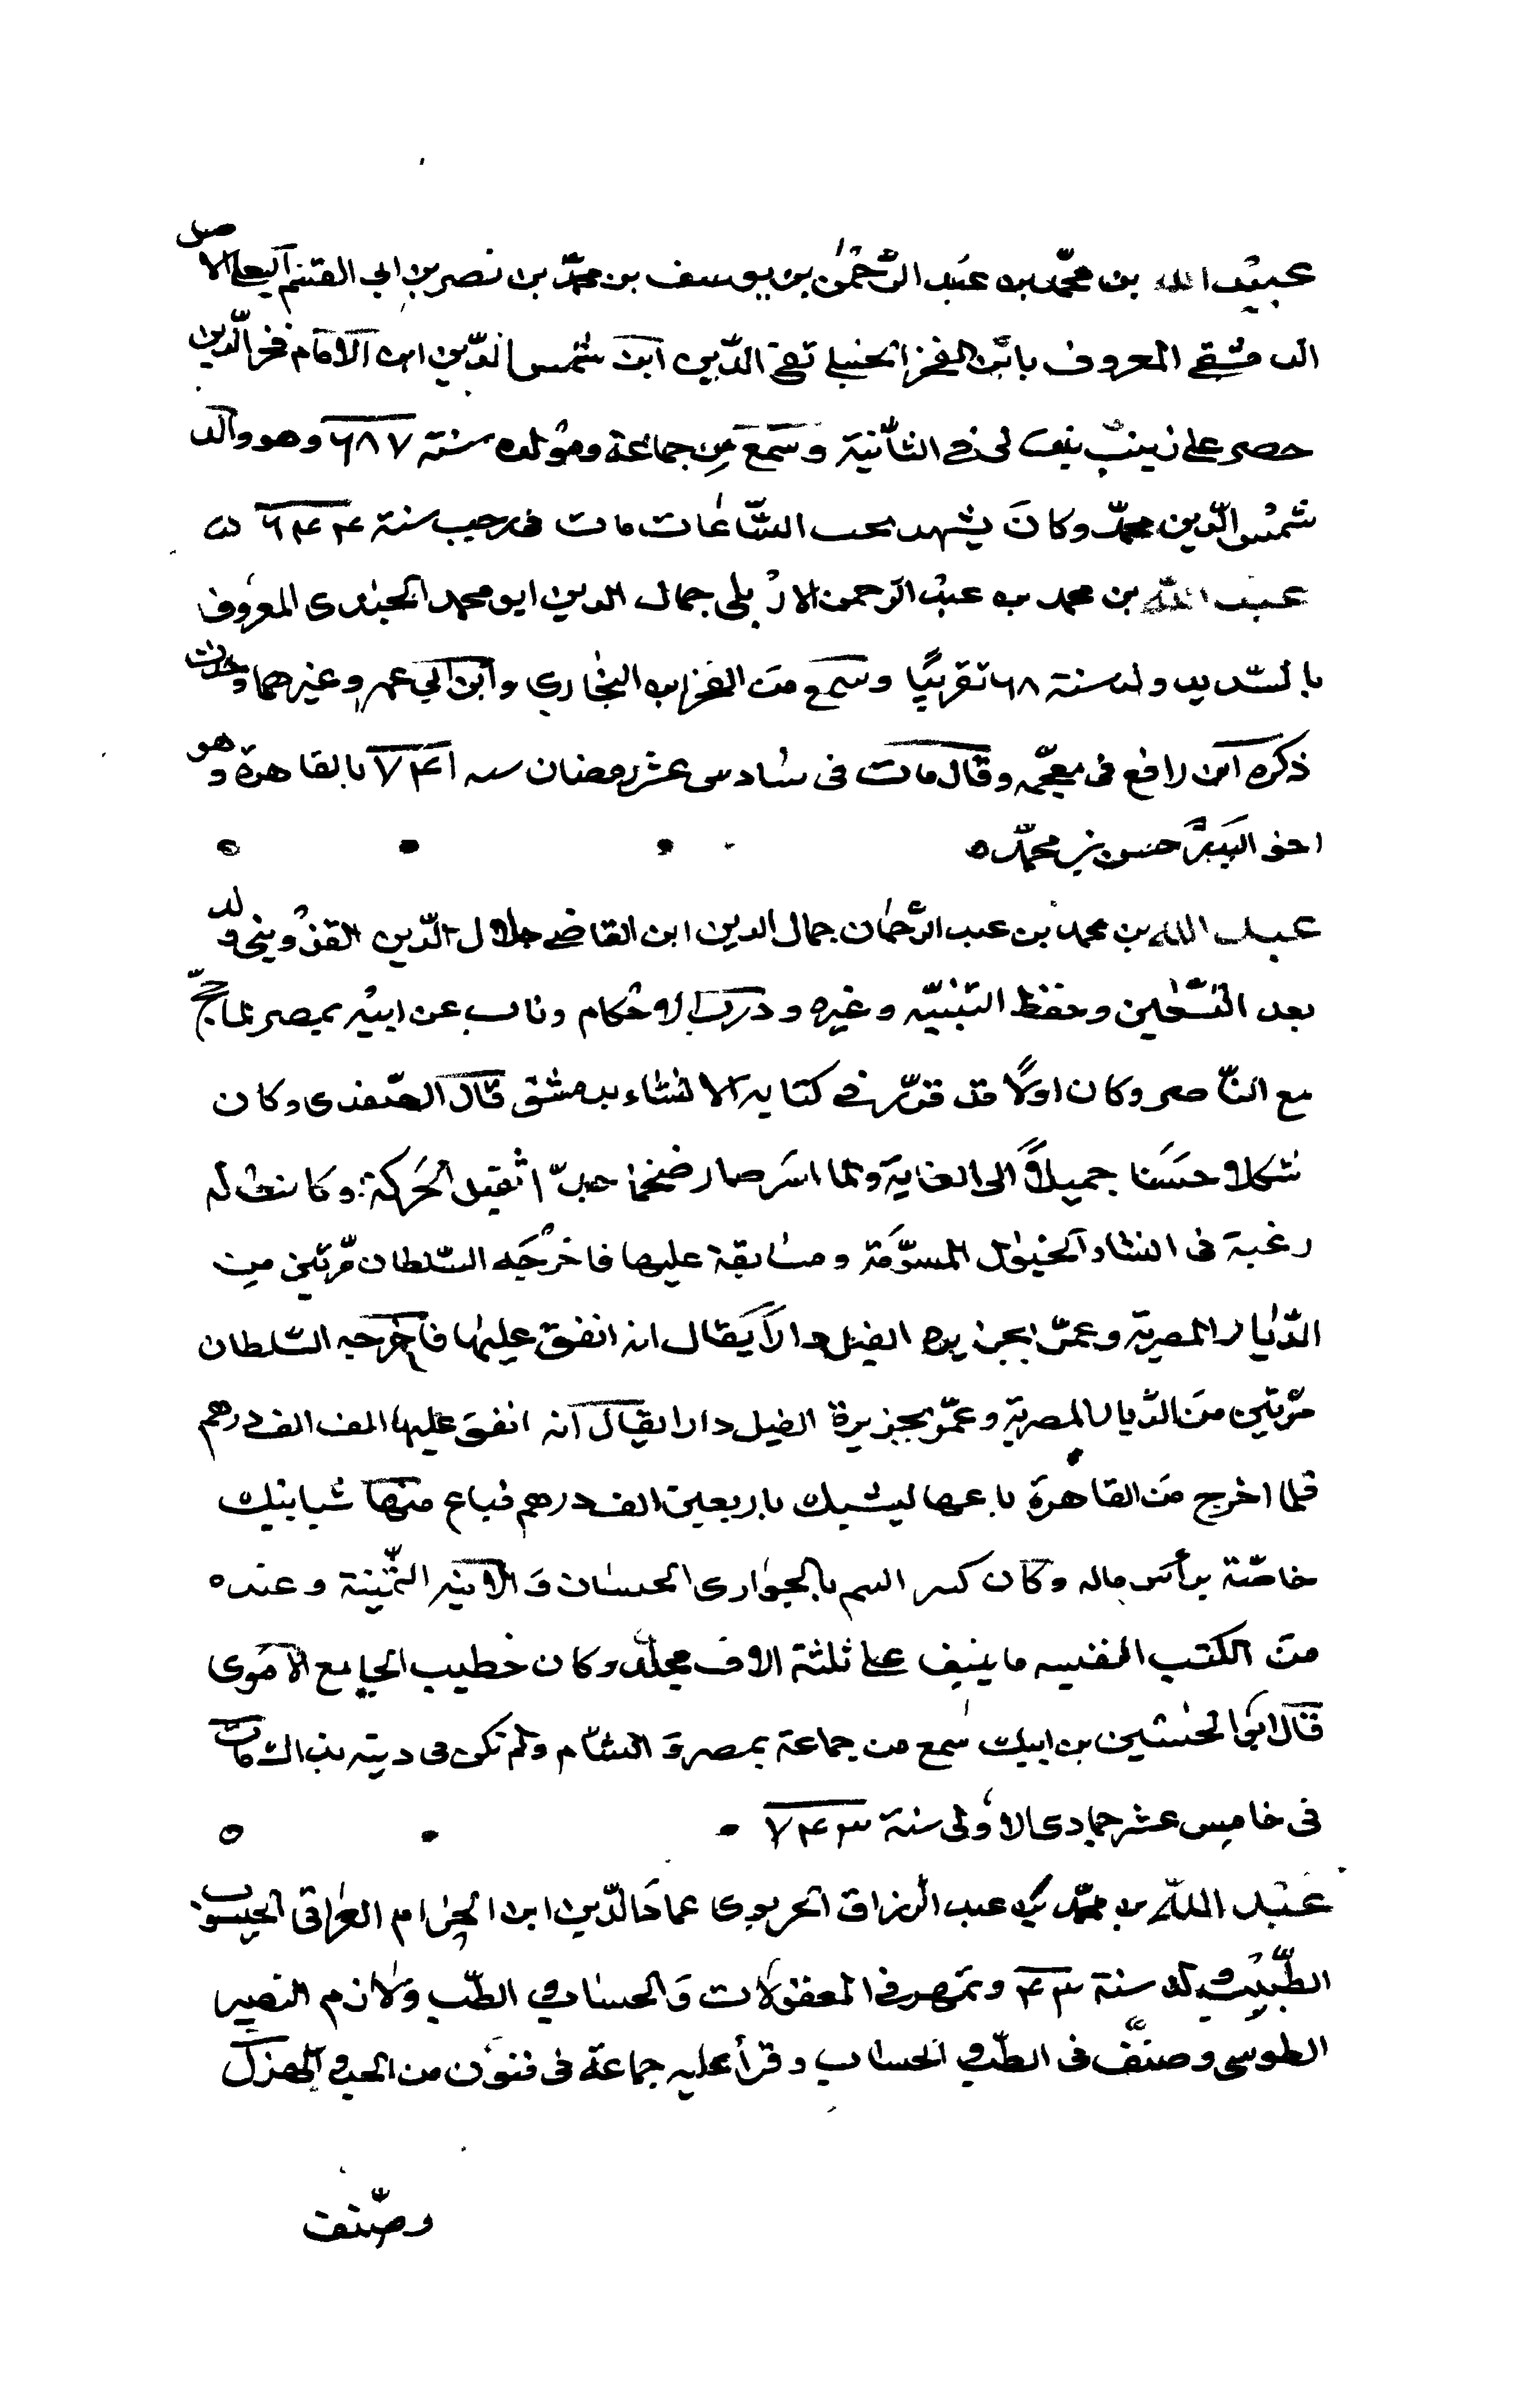 عبد الله بن محمد بن عبد الرحمن بن يوسف بن محمد بن نصر بن ابي القسم البعلي الاصل
الدمشقي المعروف بابن الفخر الحنبلي تقي الدين ابن شمس الدين ابن الامام فخر الدين
حضر على زينب بنت في الثانية وسمع من جماعة ومولده سنة ٦٨٧ وهو والد
شمس الدين محمد وكان يشهد تحت الساعات مات في رجب سنة ٦٤٤
عبد الله بن محمد بن عبد الرحمن الاربلي جمال الدين ابو محمد الجندى المعروف
بالسديد ولد سنة ٦٨ تقريبًا وسمع من الفخر ابن البخاري وابن ابي عمر وغيرهما وحدث
ذكره ابن رافع في معجمه وقال مات في سادس عشر رمضان سنه ٧٤١ بالقاهرة وهو
اخو البدر حسن بن محمد ه
عبد الله بن محمد بن عبد الرحمان جمال الدين ابن القاضي جلال الدين القزويني ولد
بعد التسعين وحفظ التنبيه وغيره ودرب الاحكام وناب عن ابيه بمصر لما حج
مع الناصر وكان اولًا قد قرر في كتابه الانشاء بدمشق قال الصفدى وكان
شكلا حسنا جميلًا الى الغاية ولما اسن صار ضخما جدّا ثقيل الحركة وكانت له
رغبة في اقتناء الخيول المسوّمة ومسابقة عليها فاخرجه السّلطان مرّتين من
الدّيار المصرية وعمّر بجزيره الفيل دارًا يقال انه انفق عليها فاخرجه السّلطان
مرّتين من الدّيار المصرية وعمّر بجزيرة الفيل دارا يقال انه انفق عليها الف الف درهم
فلما اخرج من القاهرة باعها ليشبك باربعين الف درهم فباع منها شبابيك
خاصّة برأس ماله وكان كبير الهم بالجوارى الحسان والآنية الثّمينة وعنده
من الكتب النفيسه ما ينيف على ثلثة الاف مجلّد وكان خطيب الجامع الاموى
قال ابو الحسين بن ايبك سمع من جماعة بمصر والشام ولم تكن في ديته بذاك مات
في خامس عشر جمادى الاولى سنة ٧٤٣
عبد الله بن محمد بن عبد الرزاق الحربوى عماد الدّين ابن الخرام العراقي الحيسوب
الطّبيب ولد سنة ٤٣ وتمهر في المعقولات والحساب والطّب ولازم النصير
الطوسى وصنّف في الطّب والحساب وقرأ عليه جماعة في فنون من الجد والهزل
وصنف